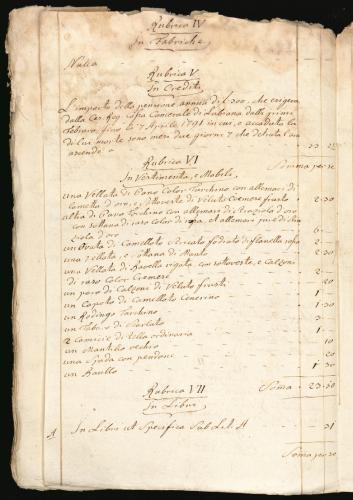 Rubrica IV
In Fabriche
Nulla
Rubrica V
In Crediti
L'importo della pensione annua di f 200, che esigeva
dalla Ces. Reg. Cassa Camerale di Lubiana dalli primi
Febraro fino a 7 Aprile 1791 in cui è accaduta la
di lui morte sono mesi due giorni 7 che detrata l'
ascende a
Soma per se
Rubrica VI
In Vestimenta, e Mobili
una Vellata di Pano Color Turchino con allemari di
lametta d'oro, e Sottoveste di Veluto Cremese frusto 2-30
altra di Pano Turchino con allemari di d'oro
con sottana di raso color di ropa, et allemari pur di
d'oro 6-
un di Camellotto fodrato di flanella rosa 2-
una Vellata, e sottana di Manto 2-30
una Vellata di rigata con sottoveste, e Calzoni
di raso Color Cremese 2-
un paro di Calzoni di Veluto frusti -20
un Capoto di Camellotto Cenerino 2-
un Rodingo Turchino 1-30
un Tabaro di Scarlato 3-
2 Camicie di tella ordinaria 1-
un Mantilio vechio 10
una Spada con pendone 20
un Baullo 1-30
Soma 23-50
Rubrica VII
In Libri
A In Libri ut Specifica Sub Lit. A 31
Soma per se